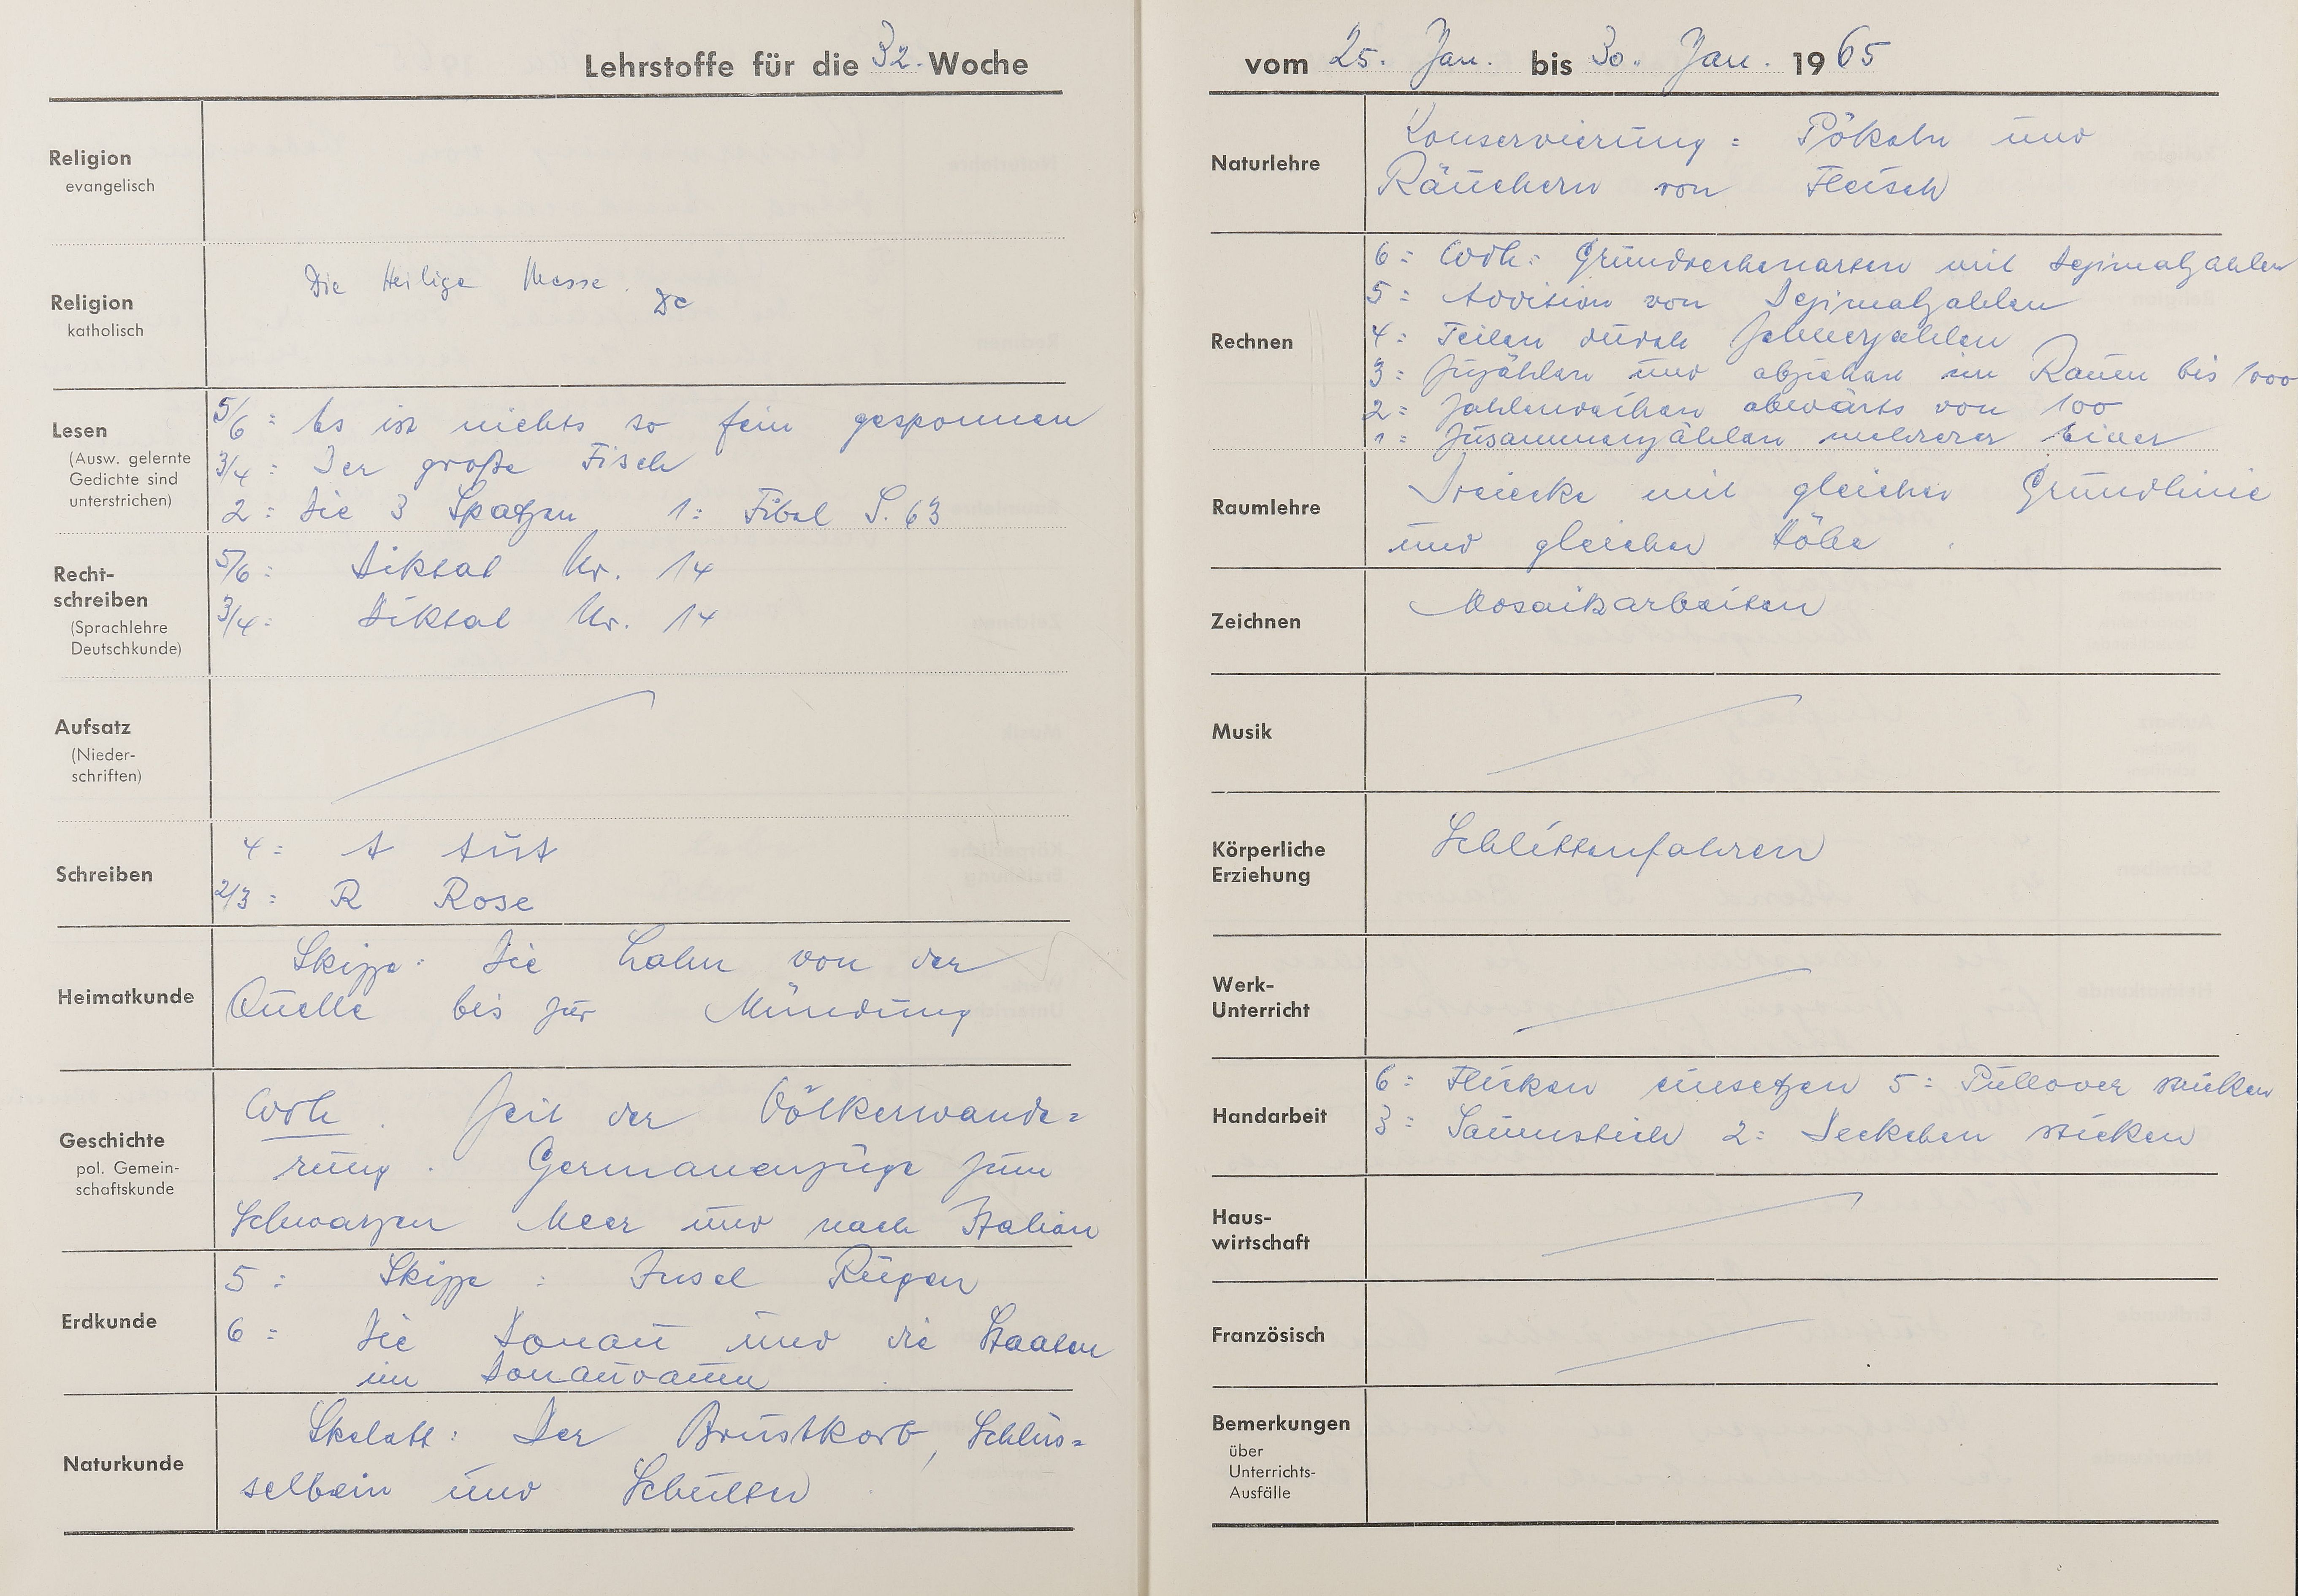 Lehrstoffe für die 32. Woche
Religion
evangelisch
Religion
katholisch
Die Heilige Messe.
Lesen
(Ausw. gelernte
Gedichte sind
unterstrichen)
5/6: Es ist nichts so fein gesponnen
3/4: Der große Fisch
2: Die 3 Spatzen 1: Fibel S. 63
Recht-
schreiben
(Sprachlehre
Deutschkunde)
5/6: Diktat Nr. 14
3/4: Diktat Nr. 14
Aufsatz
(Nieder-
schriften)
Schreiben
4: A Ast
2/3: R Rose
Heimatkunde
Skizze: Die Lahn von der
Quelle bis zur Mündung
Geschichte
pol. Gemein-
schaftskunde
Wdh. Zeit der Völkerwande=
rung. Germanenzüge zum
Schwarzen Meer und nach Italien
Erdkunde
5: Skizze: Insel Rügen
6: Die Donau und die Staaten
im Donauraum
Naturkunde
Skelett: Der Brustkorb, Schlüs=
selbein und Schulter
vom 25. Jan. bis 30. Jan. 1965
Naturlehre
Konservierung: Pökeln und
Räuchern von Fleisch
Rechnen
6: Wdh: Grundrechenarten mit Dezimalzahlen
5: Addition von Dezimalzahlen
4: Teilen durch Zehnerzahlen
3: Zuzählen und abziehen im Raum bis 1000
2: Zahlenreihen abwärts von 100
1: Zusammenzählen mehrerer Einer
Raumlehre
Dreiecke mit gleicher Grundlinie
und gleicher Höhe
Zeichnen
Mosaikarbeiten
Musik
Körperliche
Erziehung
Schlittenfahren
Werk-
Unterricht
Handarbeit
6: Flicken einsetzen 5: Pullover stricken
3: Saumstich 2: Deckchen sticken
Haus-
wirtschaft
Französisch
Bemerkungen
über
Unterrichts-
Ausfälle